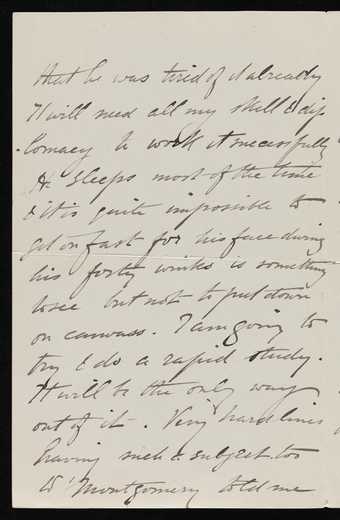 that he was tired of it already
It will need all my skill & dip
lomacy to work it successfully
H. Sleeps most of the time
& it is quite impossible to
get on fast for his face during
his forty winks is something
to see but not to put down
on canvass. I am going to
try & do a rapid study.
It will be the only way
out of it. Very hard lines
having such a subject too
Montgomery told me